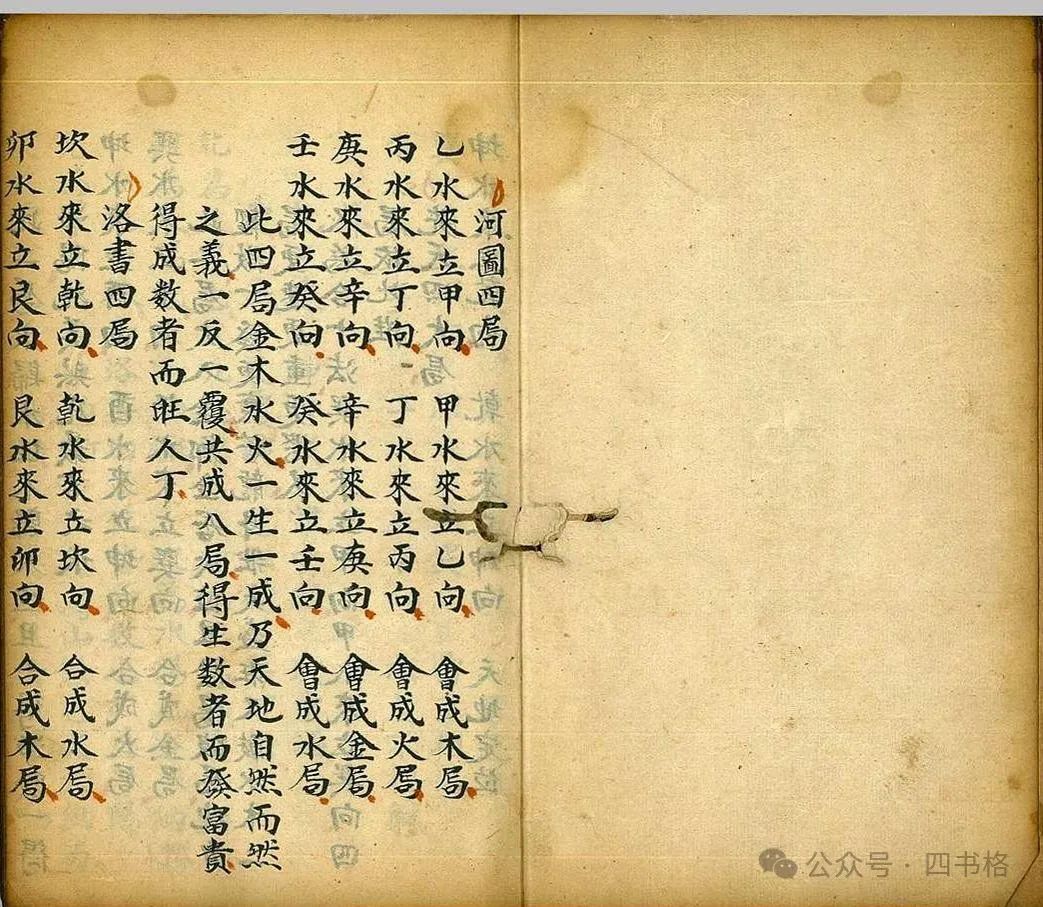 河圖四局
乙水來立甲向 甲水來立乙向 會成木局
丙水來立丁向 丁水來立丙向 會成火局
庚水來立辛向 辛水來立庚向 會成金局
壬水來立癸向 癸水來立壬向 會成水局
此四局金木水火一生一成乃天地自然而然
之義一反一覆共成八局得生数者而發富貴
得成数者而旺人丁
洛書四局
坎水來立乾向 乾水來立坎向 合成水局
卯水來立艮向 艮水來立卯向 合成木局
公众号·四书格